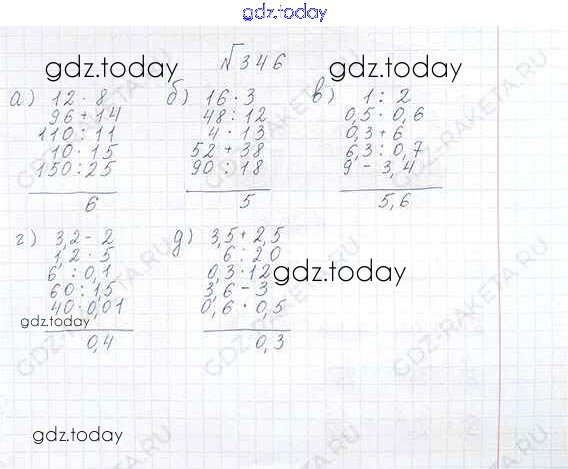 gdz.today
№346
gdz.today
gdz.today
а) 12 · 8
96 + 14
110 : 11
10 · 15
150 : 25
6
б) 16 · 3
48 : 12
4 · 13
52 + 38
90 : 18
5
в) 1 : 2
0,5 · 0,6
0,3 + 6
6,3 : 0,7
9 - 3,4
5,6
г) 3,2 - 2
1,2 · 5
6 : 0,1
60 : 1,5
40 · 0,01
0,4
д) 3,5 + 2,5
6 : 20
0,3 · 12
3,6 - 3
0,6 · 0,5
0,3
gdz.today
gdz.today
gdz.today
GDZ-RAKETA.RU